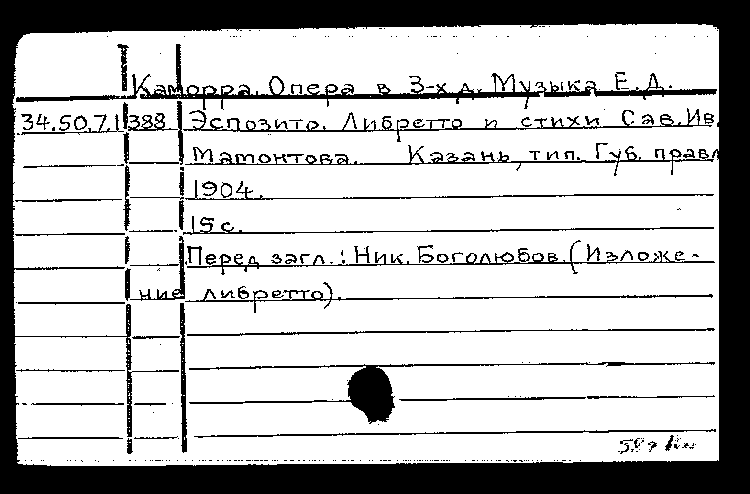 Каморра. Опера в 3-х д. Музыка Е.Д.
34.50.7.1 388 Эспозито. Либретто и стихи Сав.Ив.
Мамонтова. Казань, тип. Губ. правл
1904.
15 с.
Перед загл.: Ник. Боголюбов. (Изложе-
ние либретто).